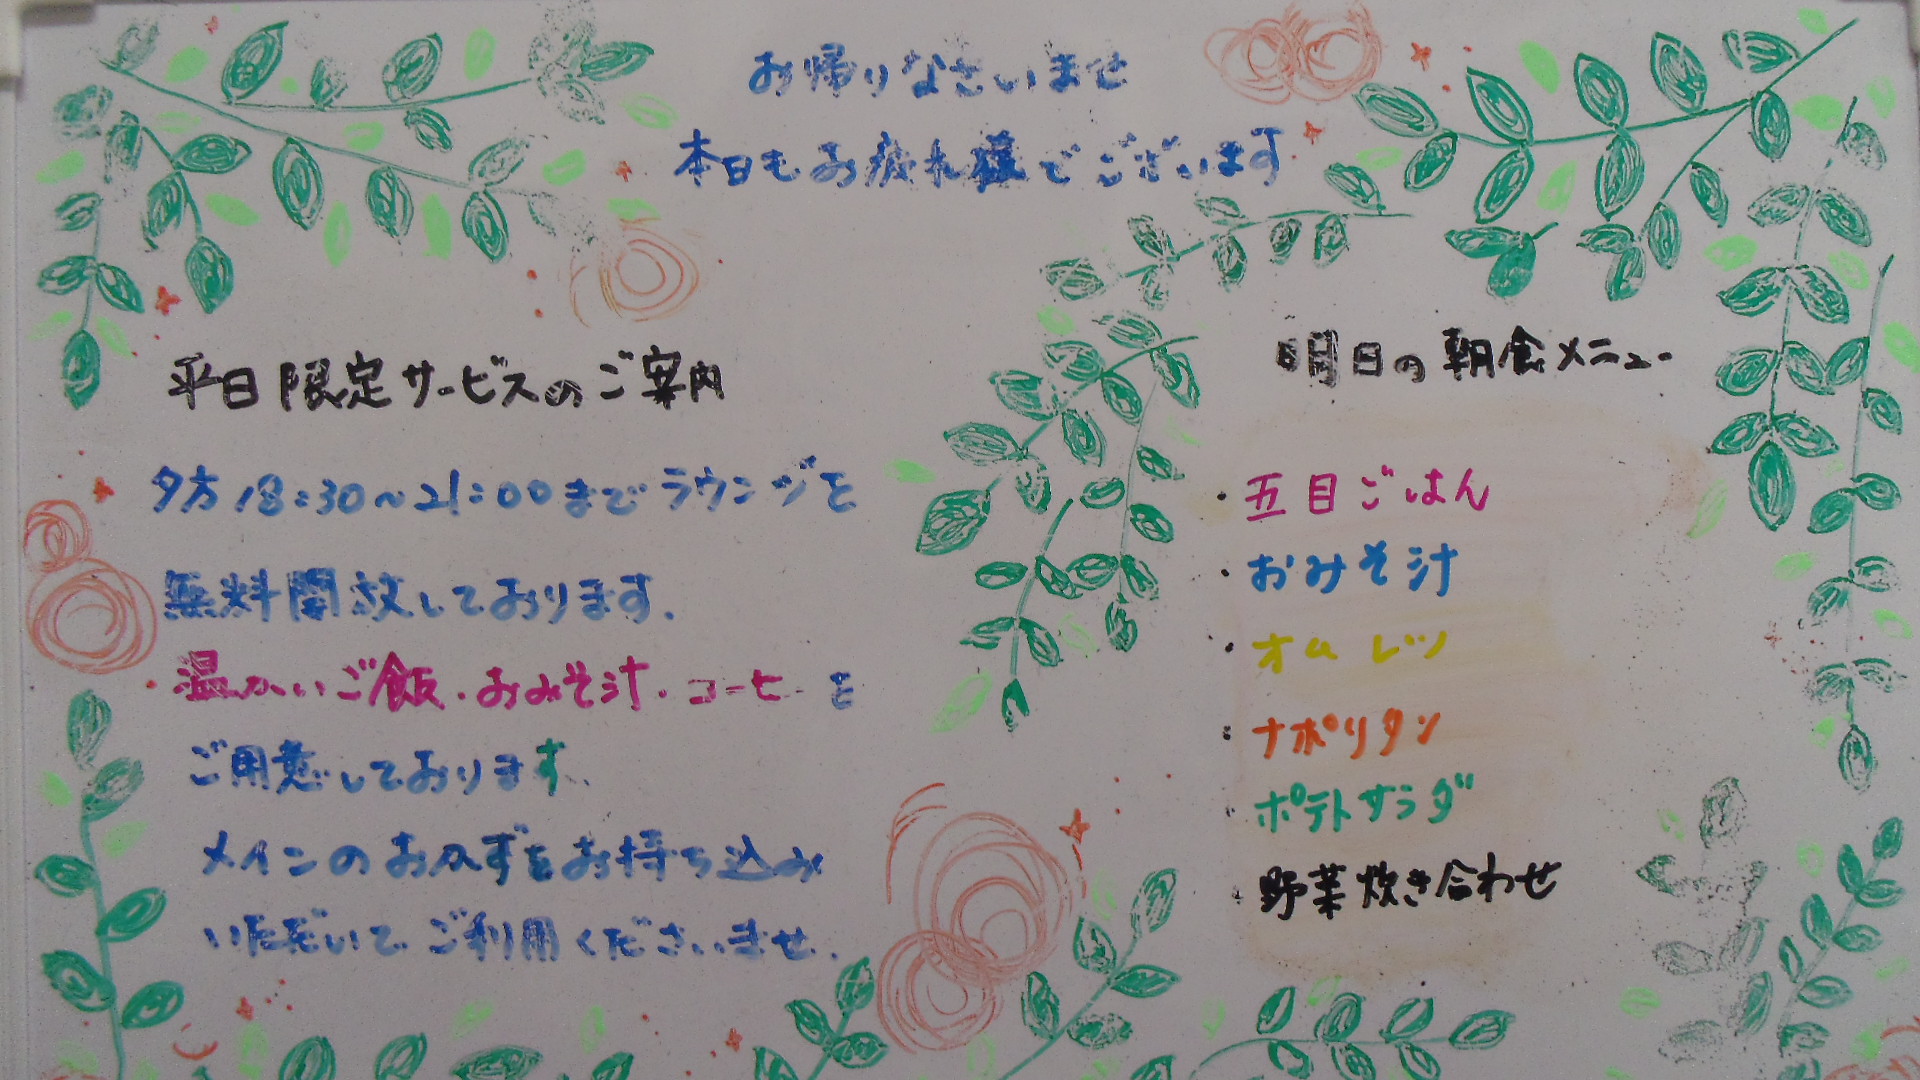 お帰りなさいませ
本日もお疲れ様でございます
平日限定サービスのご案内
夕方18:30～21:00までラウンジを
無料開放しております.
・温かいご飯・おみそ汁・コーヒーを
ご用意しております.
メインのおかずをお持ち込み
いただいてご利用くださいませ.
明日の朝食メニュー
・五目ごはん
・おみそ汁
・オムレツ
・ナポリタン
・ポテトサラダ
・野菜炊き合わせ